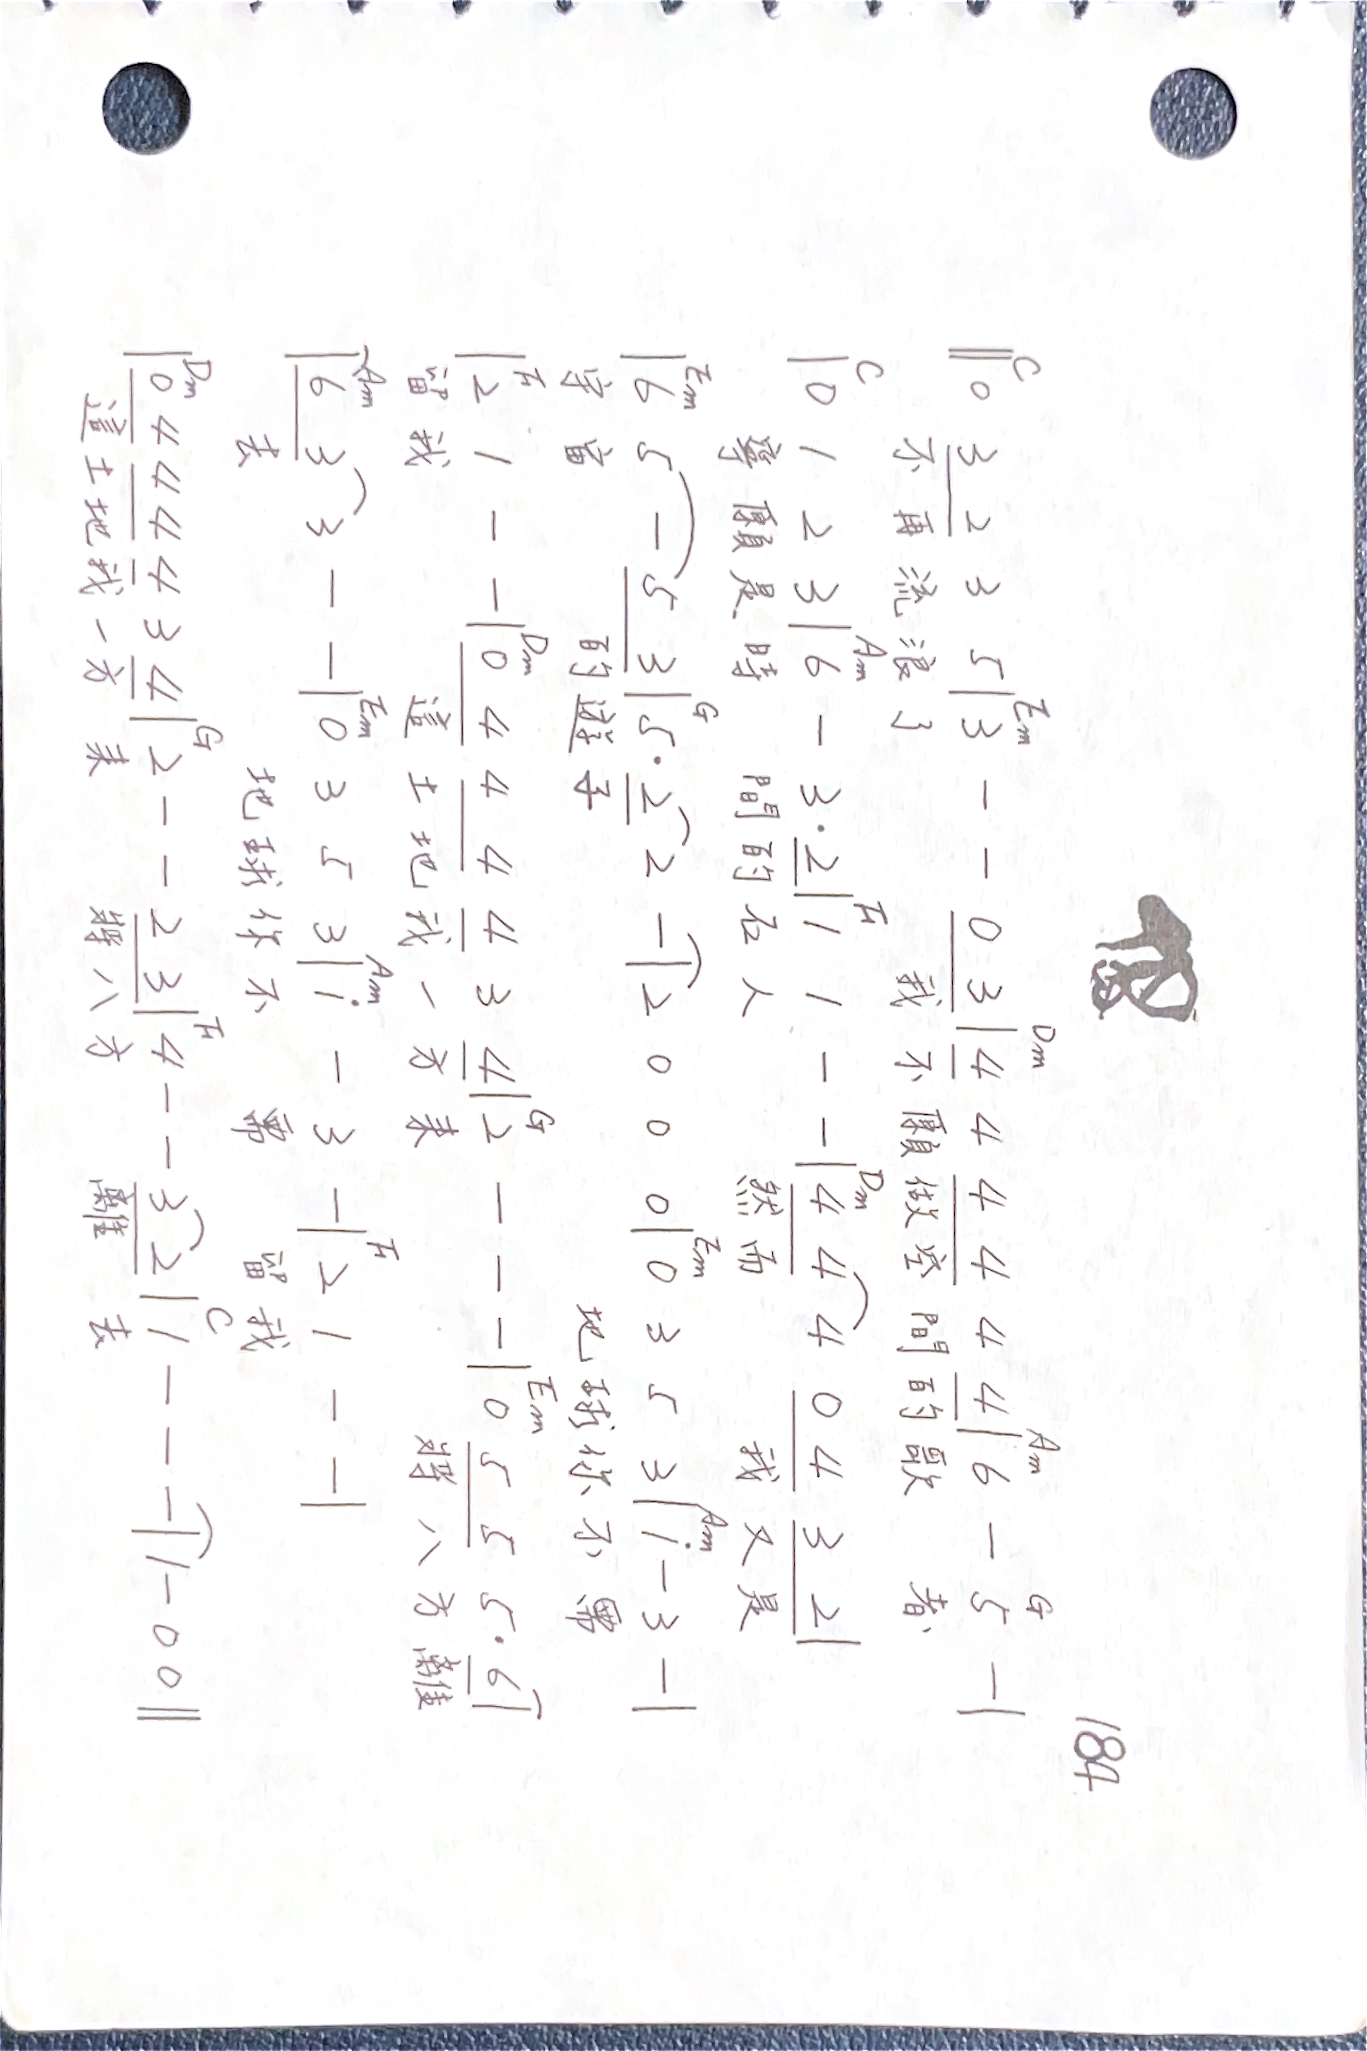 184
C Em Dm Am G
‖0 3 2 3 5|3 - - 0 3|4 4 4 4 4 4|6 - 5 -|
不再流浪了 我不願做空間的歌 者
C Am F Dm
|0 1 2 3|6 - 3·2|1 1 - -|4 4 4 0 4 3 2|
寧願是時 間的石人 然而 我又是
Em G Em Am
|6 5 - 5 3|5·2 2 -|2 0 0 0|0 3 5 3|i - 3 -|
宇宙 的遊子 地球你不需
F Dm G Em
|2 1 - -|0 4 4 4 4 3 4|2 - - -|0 5 5 5·6|
留我 這土地我一方來 將八方離
Am Em Am F
|6 3 3 - -|0 3 5 3|i - 3 -|2 1 - -|
去 地球你不 需 留我
Dm G F C
|0 4 4 4 4 3 4|2 - - 2 3|4 - - 3 2|1 - - -|1 - 0 0‖
這土地我一方 來 將八方 離 去